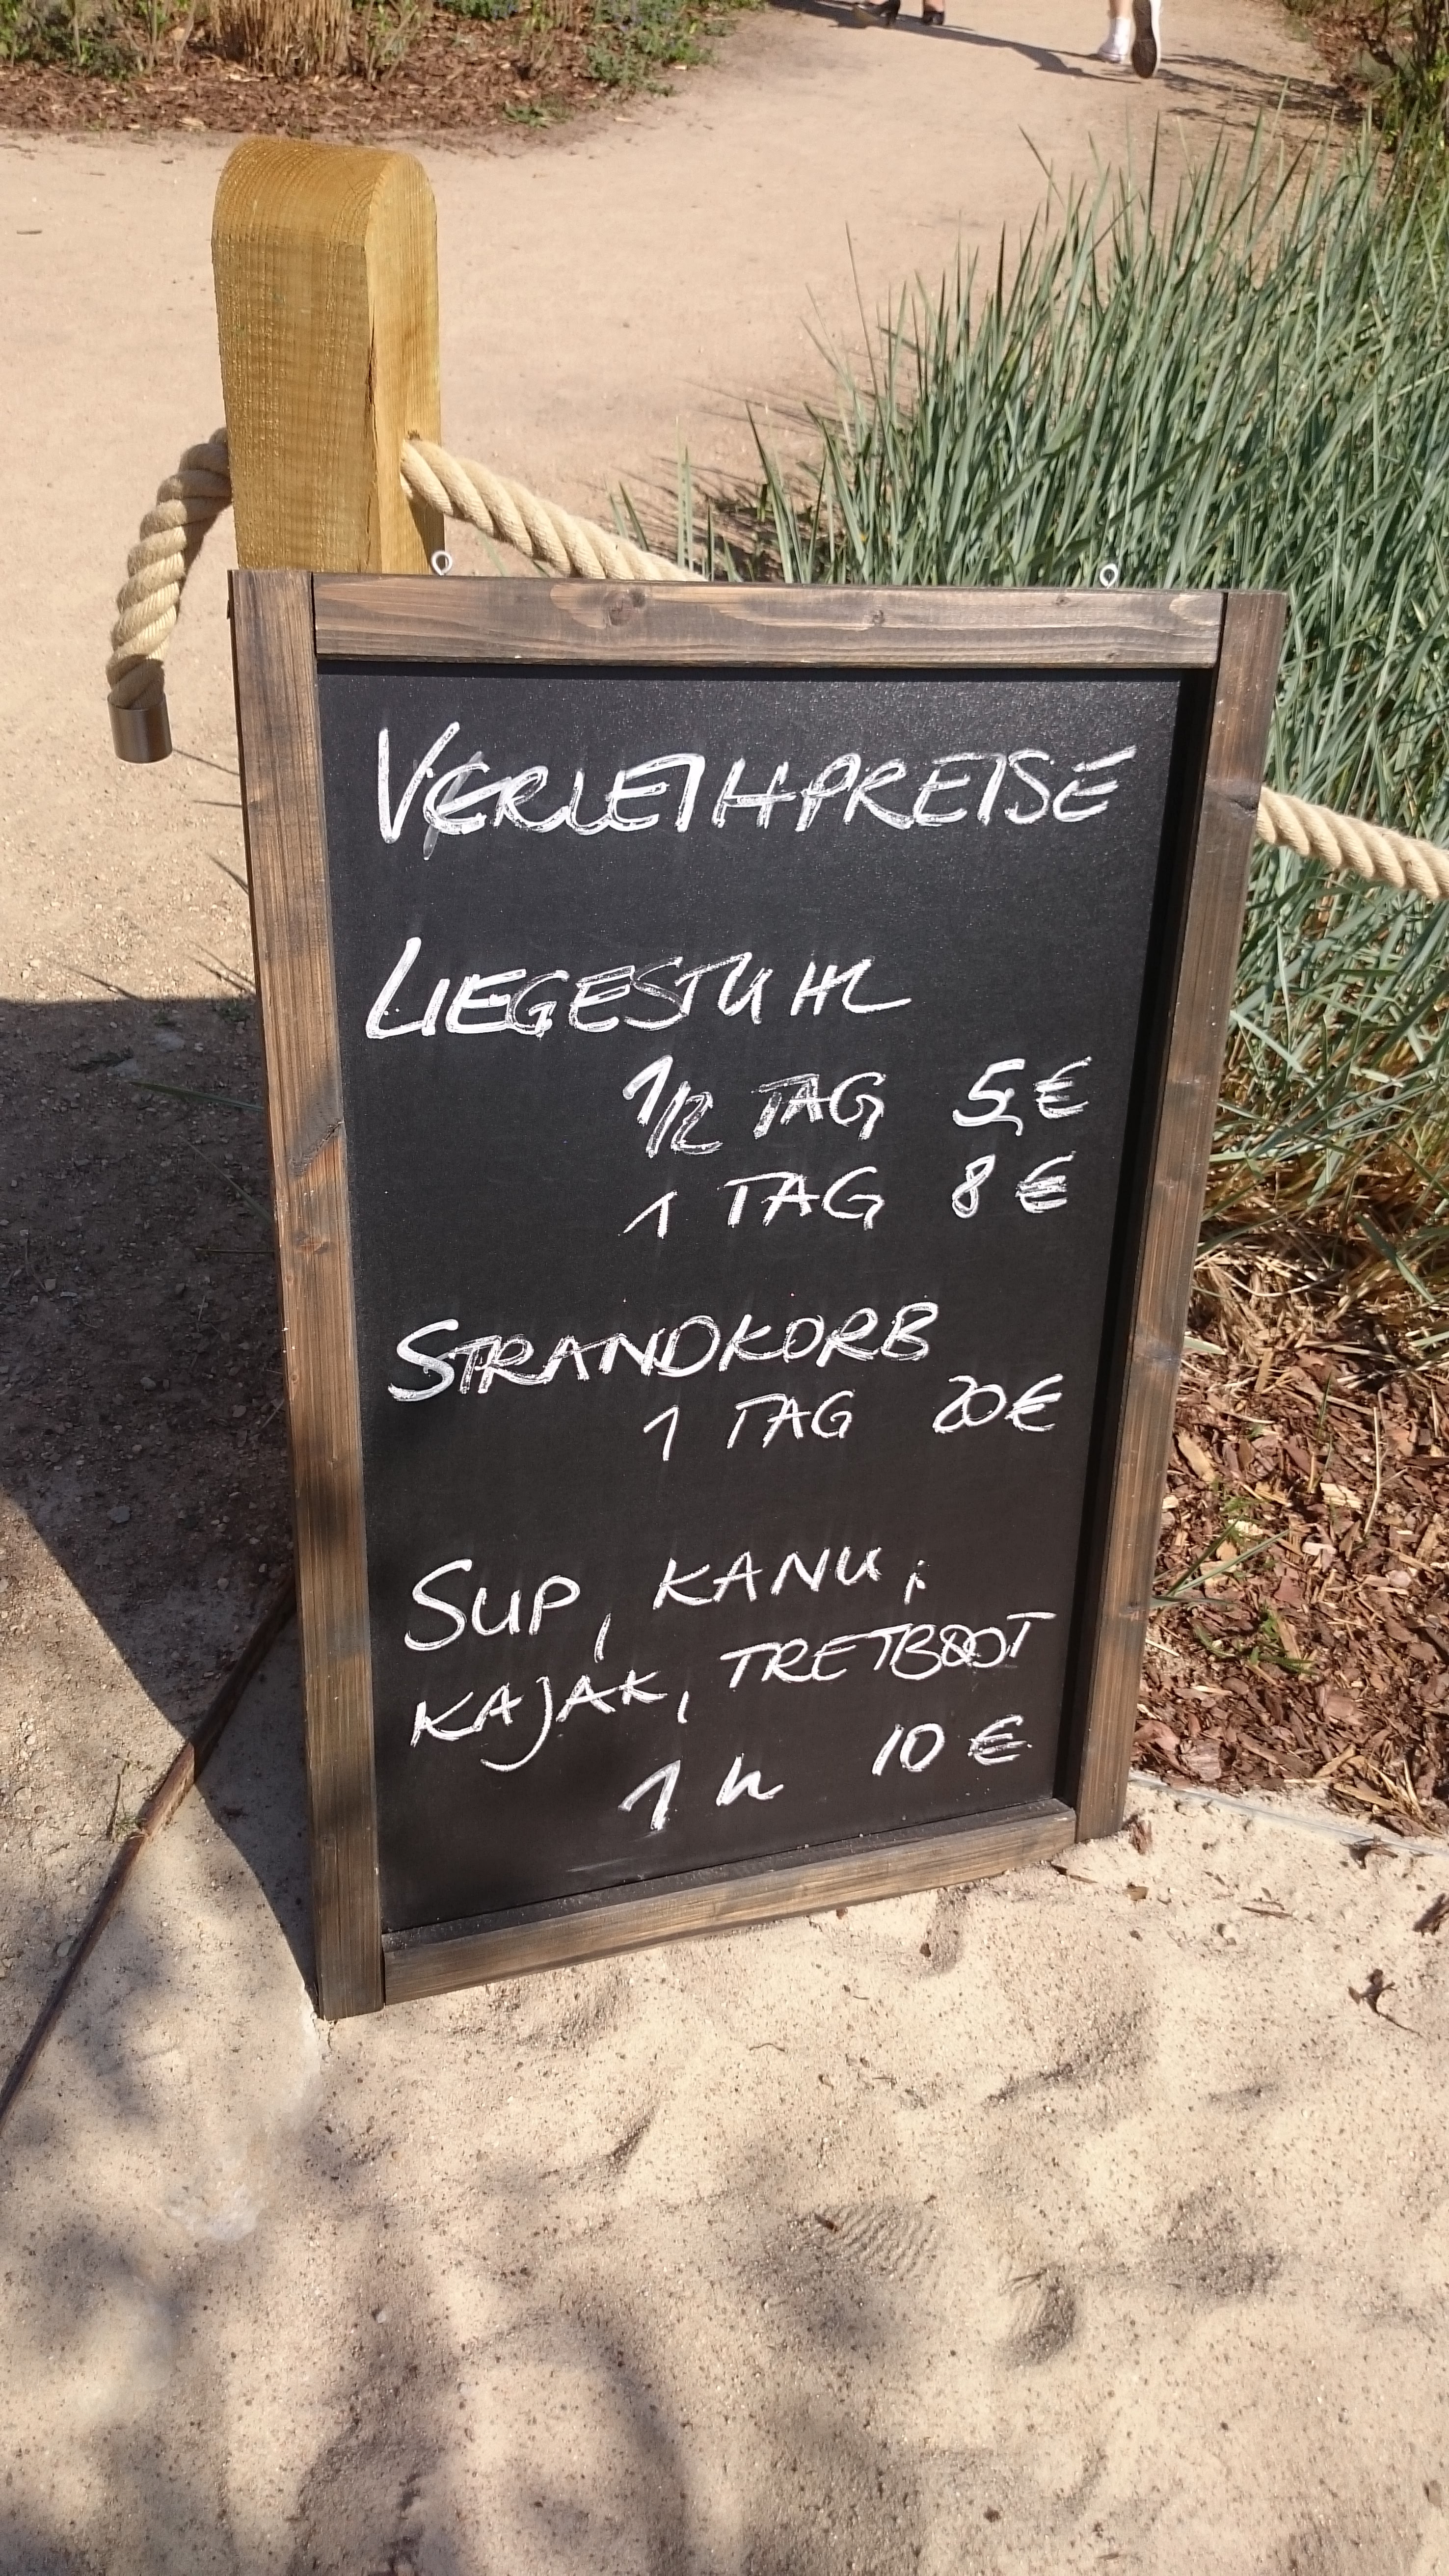 VERLEIHPREISE
LIEGESTUHL
1/2 TAG 5,€
1 TAG 8 €
STRANDKORB
1 TAG 20€
SUP, KANU,
KAJAK, TRETBOOT
1 h 10 €